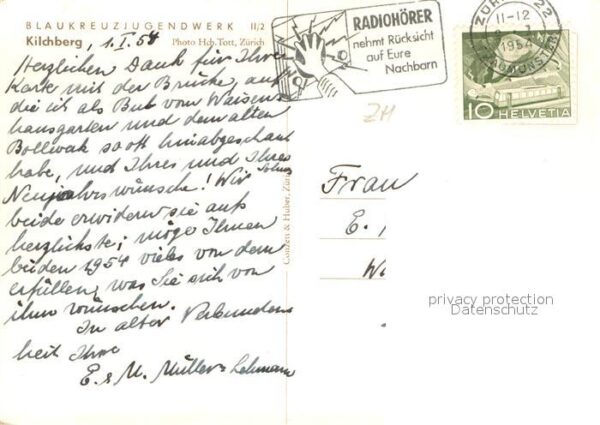 BLAUKREUZJUGENDWERK II/2
Kilchberg, 1.I.54 Photo Hch. Tott, Zürich
Herzlichen Dank für Ihre
Karte mit der Brücke, auf
die ich als Bub vom Waisen-
hausgarten und dem alten
Bollwerk so oft hinabgeschaut
habe, und Ihres und Ihres Sohnes
Neujahrswünsche! Wir
beide erwidern sie aufs
herzlichste; möge Ihnen
beiden 1954 vieles von dem
erfüllen, was Sie sich von
ihm wünschen.
In alter Verbunden-
heit Ihre
E. & M. Müller-Lehmann
Conzett & Huber, Zürich
RADIOHÖRER
nehmt Rücksicht
auf Eure
Nachbarn
ZÜRICH 22
11-12
1954
FRAUMÜNSTER
10 HELVETIA
ZH
Frau
E.
privacy protection
Datenschutz